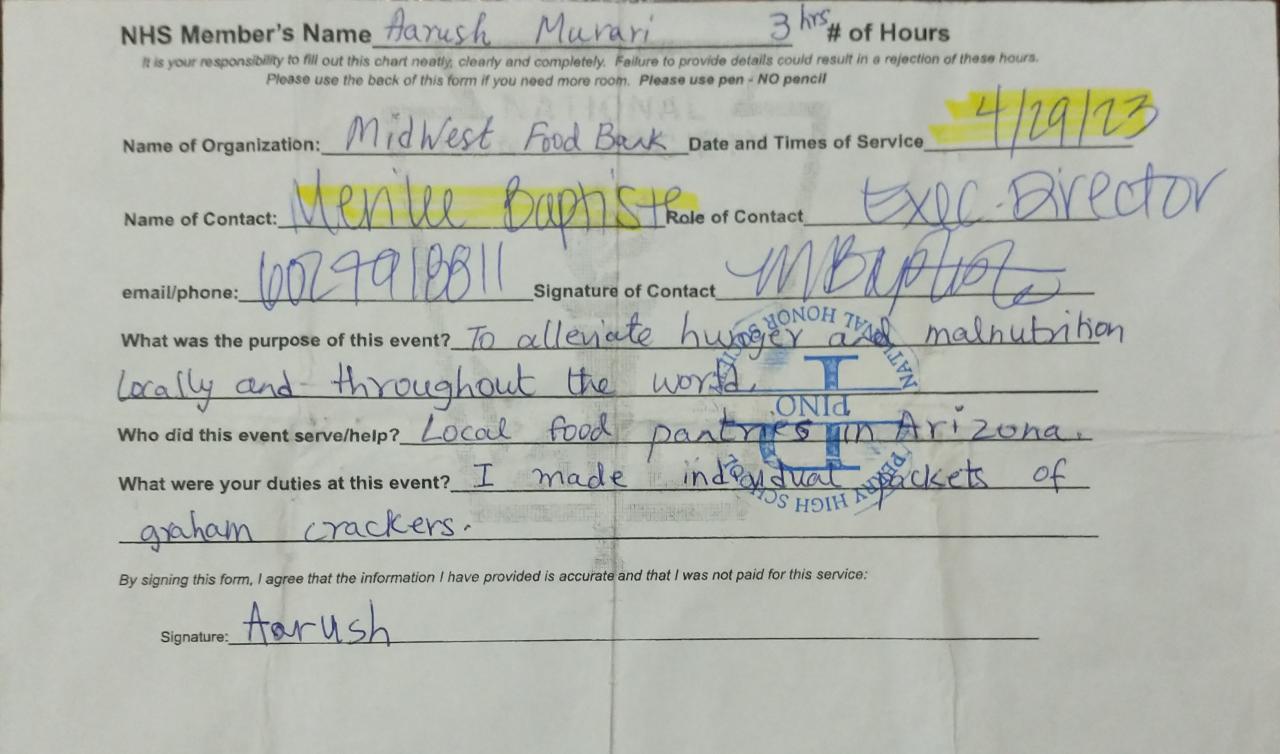 NHS Member's Name Aarush Murari 3 hrs # of Hours
It is your responsibility to fill out this chart neatly, clearly and completely. Failure to provide details could result in a rejection of these hours.
Please use the back of this form if you need more room. Please use pen - NO pencil
Name of Organization: MidWest Food Bank Date and Times of Service 4/29/23
Name of Contact: Merilee Baptiste Role of Contact Exec. Director
email/phone: 6027918811 Signature of Contact MBaptiste
What was the purpose of this event? To alleviate hunger and malnutrition
locally and throughout the world.
Who did this event serve/help? Local food pantries in Arizona.
What were your duties at this event? I made individual packets of
graham crackers.
By signing this form, I agree that the information I have provided is accurate and that I was not paid for this service:
Signature: Aarush
PERRY HIGH SCHOOL
PINO
NATIONAL HONOR SOCIETY